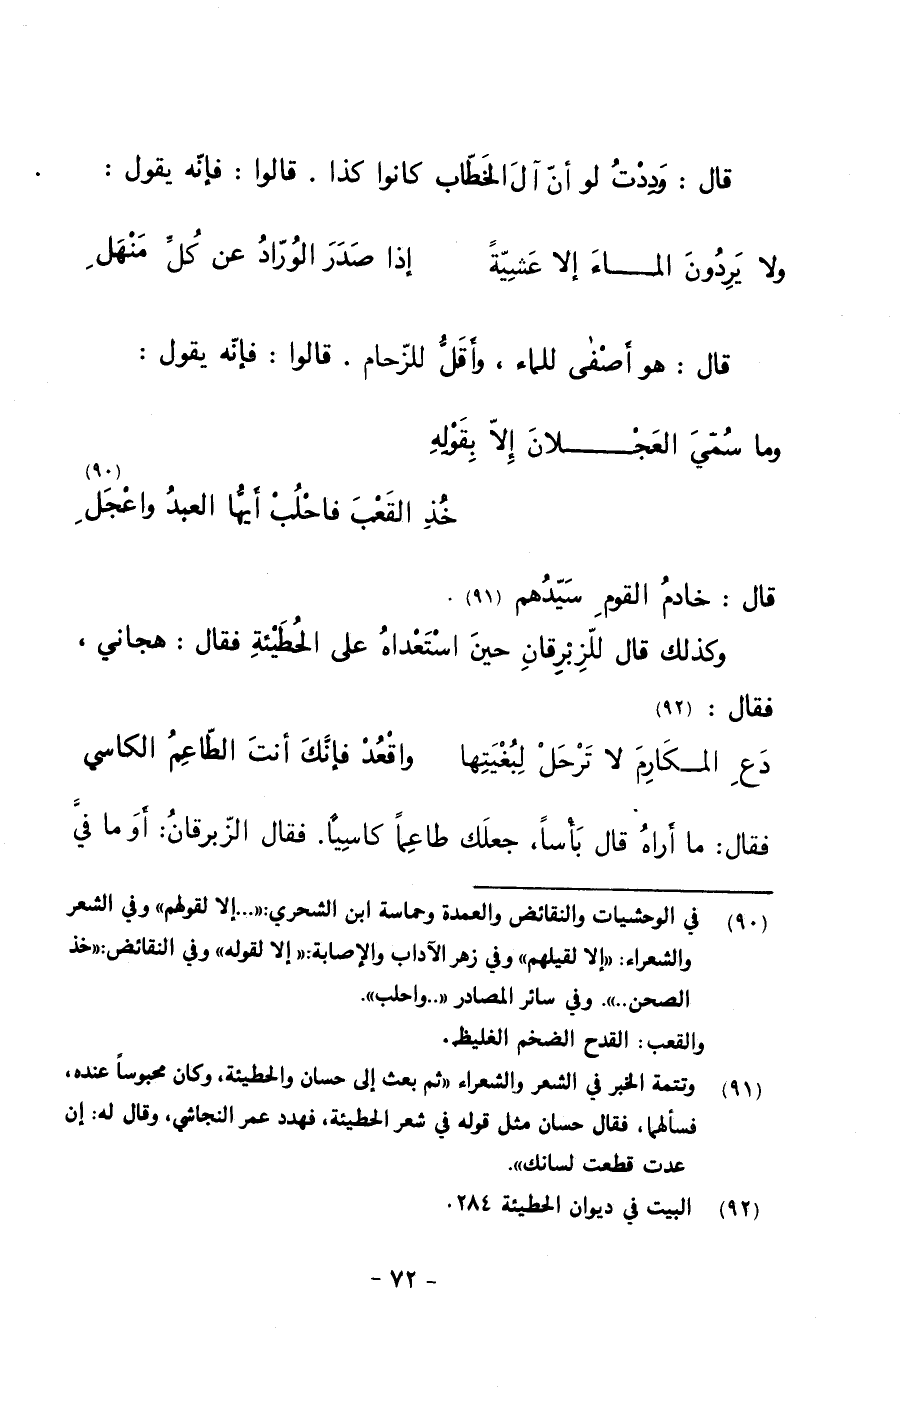 قال : وَدِدْتُ لو أنّ آلَ الخَطّاب كانوا كذا . قالوا : فإنّه يقول :
ولا يَرِدُونَ المـــاءَ إلا عَشيّةً إذا صَدَرَ الوُرّادُ عن كُلِّ مَنْهَلِ
قال : هو أَصْفٰى للماء ، وأَقَلُّ للزّحام . قالوا : فإنّه يقول :
وما سُمّيَ العَجْـــــلانَ إلاّ بِقَوْلِهِ
خُذِ القَعْبَ فاحْلُبْ أيهُّا العبدُ واعْجَلِ (٩٠)
قال : خادمُ القومِ سَيّدُهم (٩١) .
وكذلك قال للّزِبْرِقانِ حينَ اسْتَعْداهُ على الحُطَيْئةِ فقال : هجاني ،
فقال : (٩٢)
دَعِ المـكَارِمَ لا تَرْحَلْ لِبُغْيَتِها واقْعُدْ فإنَّكَ أنتَ الطّاعِمُ الكاسي
فقال: ما أراهُ قال بَأْساً، جعلَك طاعِماً كاسِياً. فقال الزّبرقانُ: أوَ ما فيَّ
(٩٠) في الوحشيات والنقائض والعمدة وحماسة ابن الشحري:«...إلا لقولهم» وفي الشعر
والشعراء: «إلا لقيلهم» وفي زهر الآداب والإصابة:« إلا لقوله» وفي النقائض:«خذ
الصحن..». وفي سائر المصادر «..واحلب».
والقعب: القدح الضخم الغليظ.
(٩١) وتتمة الخبر في الشعر والشعراء «ثم بعث إلى حسان والحطيئة، وكان محبوساً عنده،
فسألهما، فقال حسان مثل قوله في شعر الحطيئة، فهدد عمر النجاشي، وقال له: إن
عدت قطعت لسانك».
(٩٢) البيت في ديوان الحطيئة ٢٨٤.
- ٧٢ -